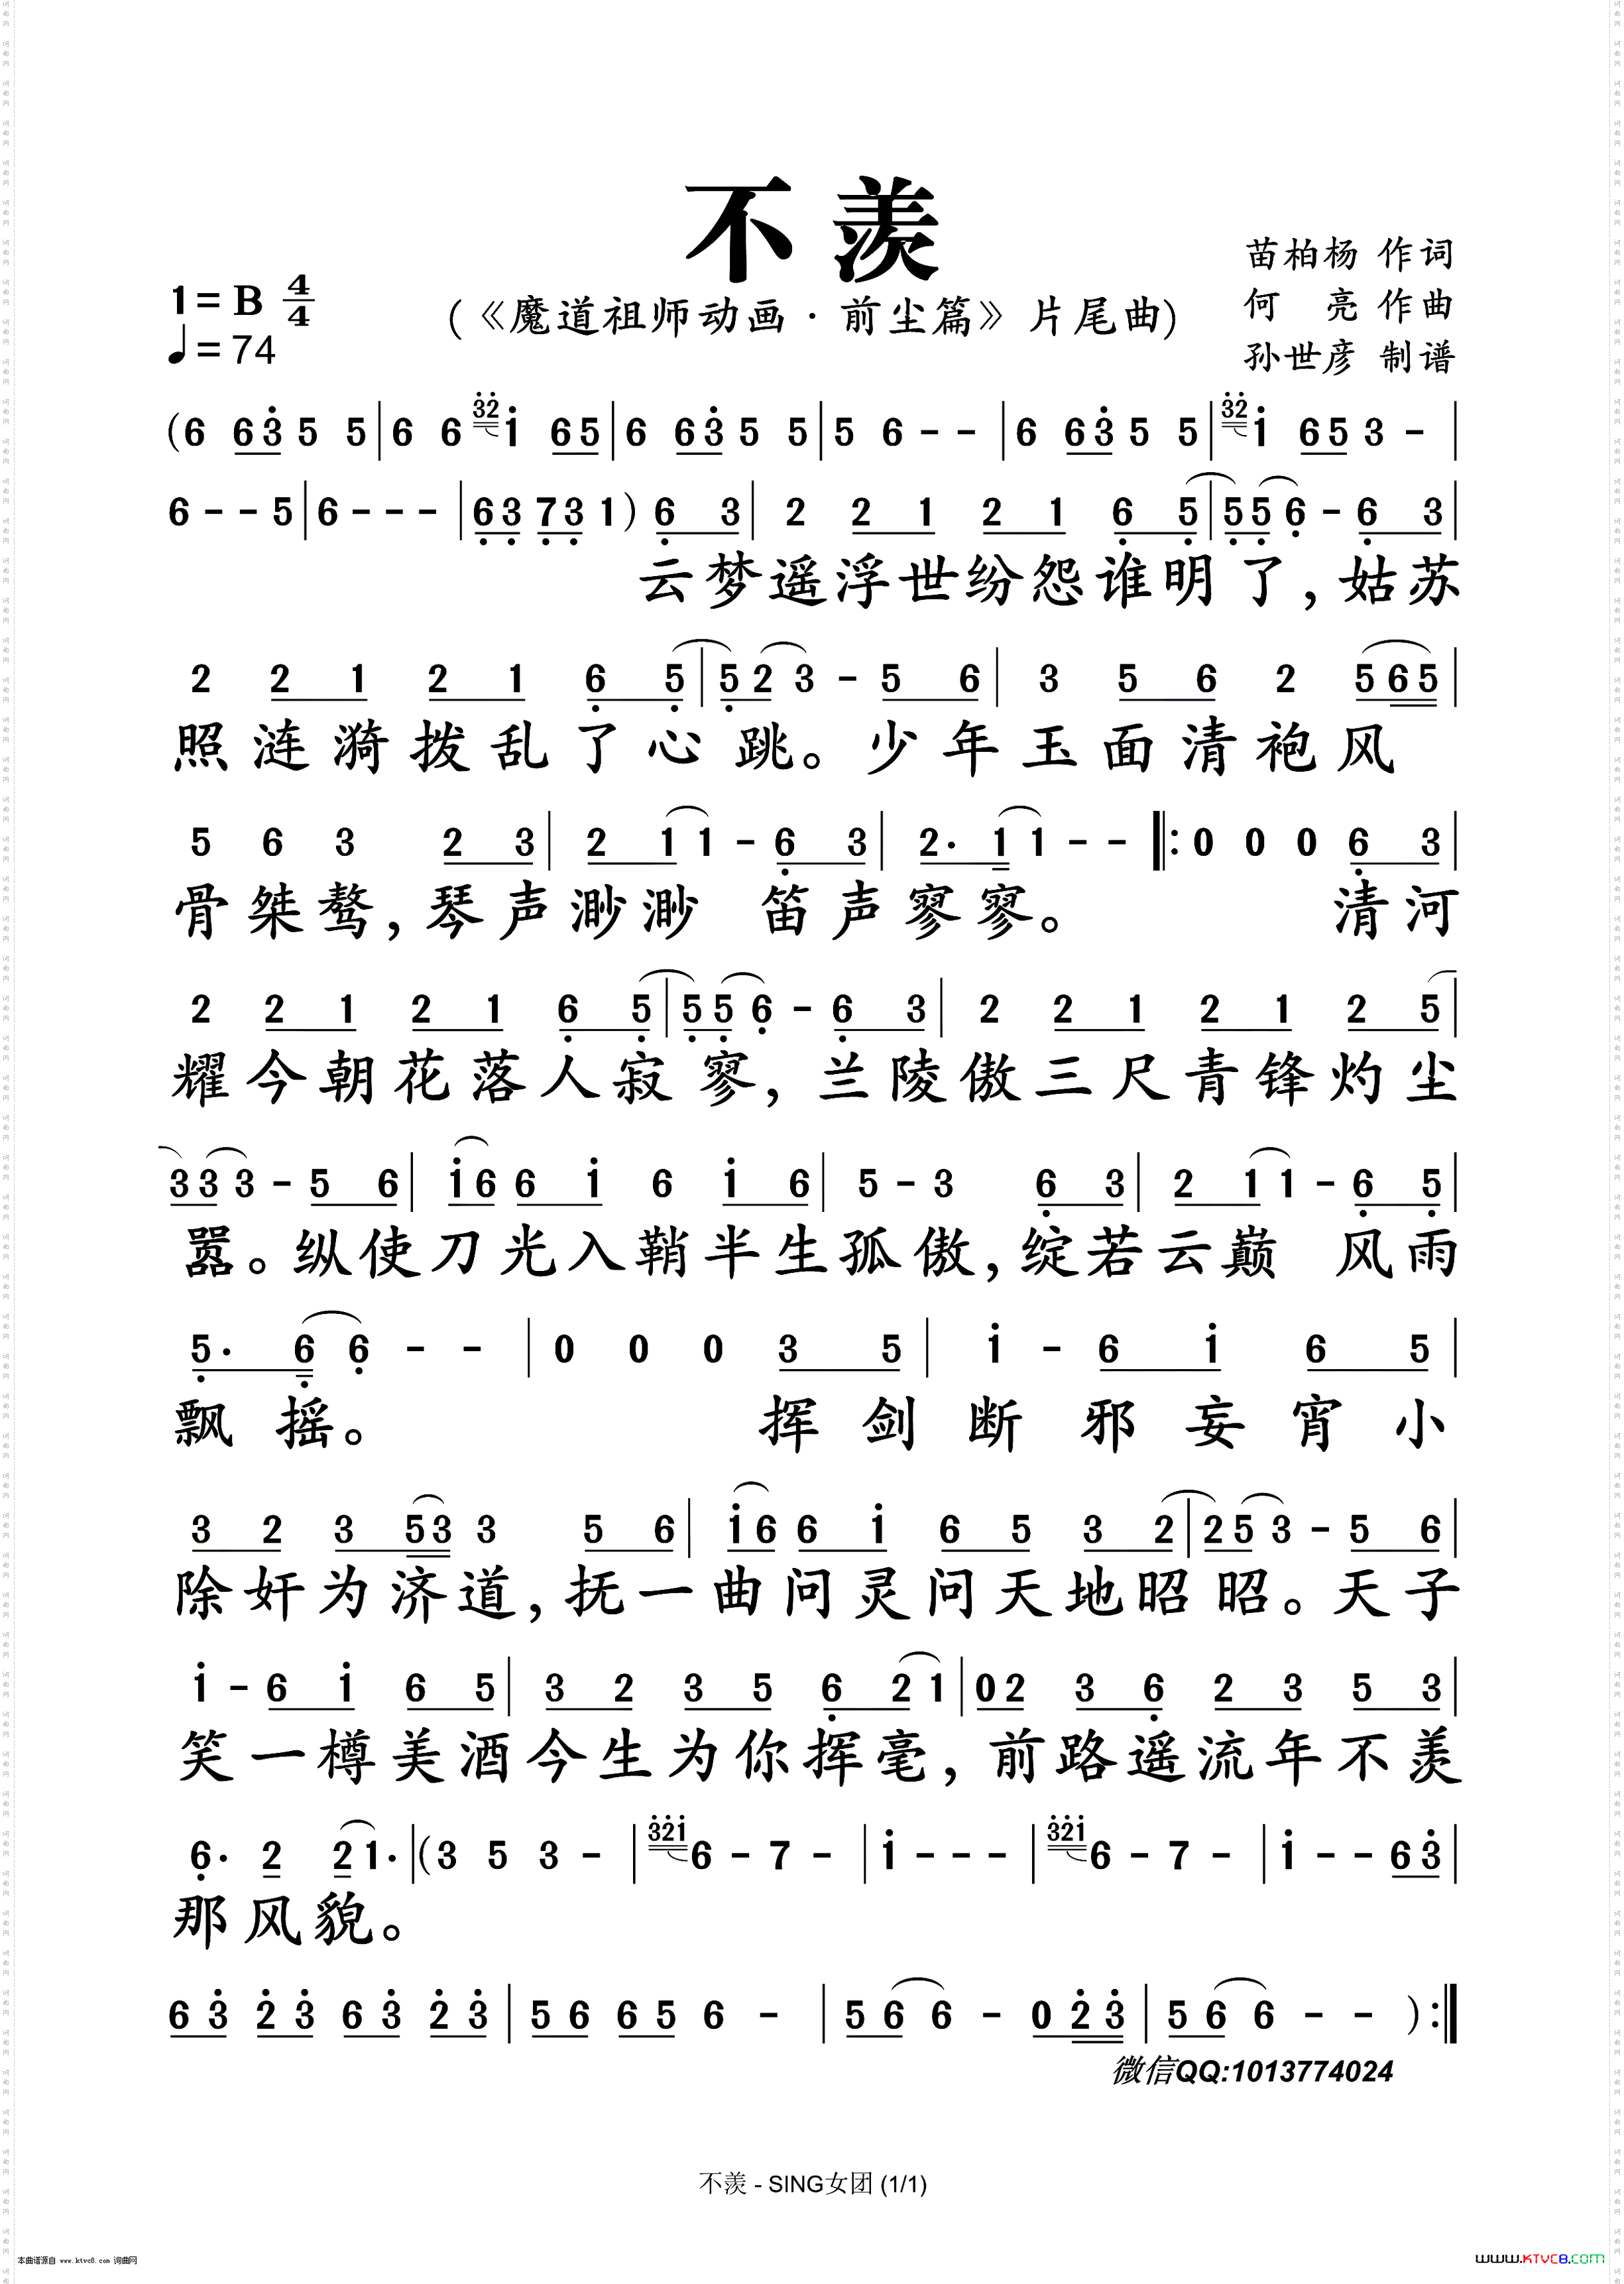 不羡
(《魔道祖师动画·前尘篇》片尾曲)
苗柏杨 作词
何 亮 作曲
孙世彦 制谱
1=B 4/4
♩=74
(6 63 5 5|6 6 32 1 65|6 63 5 5|5 6 - -|6 63 5 5|32 1 65 3 -|
6 - - 5|6 - - -|63 73 1) 6 3|2 2 1 2 1 6 5|55 6 - 6 3|
云梦遥浮世纷怨谁明了,姑苏
2 2 1 2 1 6 5|5 2 3 - 5 6|3 5 6 2 565|
照涟漪拨乱了心跳。少年玉面清袍风
5 6 3 2 3|2 1 1 - 6 3|2. 1 1 - -|:0 0 0 6 3|
骨桀骜,琴声渺渺 笛声寥寥。 清河
2 2 1 2 1 6 5|55 6 - 6 3|2 2 1 2 1 2 5|
耀今朝花落人寂寥,兰陵傲三尺青锋灼尘
33 3 - 5 6|16 6 1 6 1 6|5 - 3 6 3|2 1 1 - 6 5|
嚣。纵使刀光入鞘半生孤傲,绽若云巅 风雨
5. 6 6 - -|0 0 0 3 5|1 - 6 1 6 5|
飘摇。 挥剑断邪妄宵小
3 2 3 53 3 5 6|16 6 1 6 5 3 2|25 3 - 5 6|
除奸为济道,抚一曲问灵问天地昭昭。天子
1 - 6 1 6 5|3 2 3 5 6 2 1|02 3 6 2 3 5 3|
笑一樽美酒今生为你挥毫,前路遥流年不羡
6. 2 2 1.|(3 5 3 -|321 6 - 7 -|1 - - -|321 6 - 7 -|1 - - 63|
那风貌。
63 23 63 23|56 65 6 -|56 6 - 023|56 6 - -):|
微信QQ:1013774024
不羡 - SING女团 (1/1)
本曲谱源自 www.ktvc8.com 词曲网
www.KTVC8.com